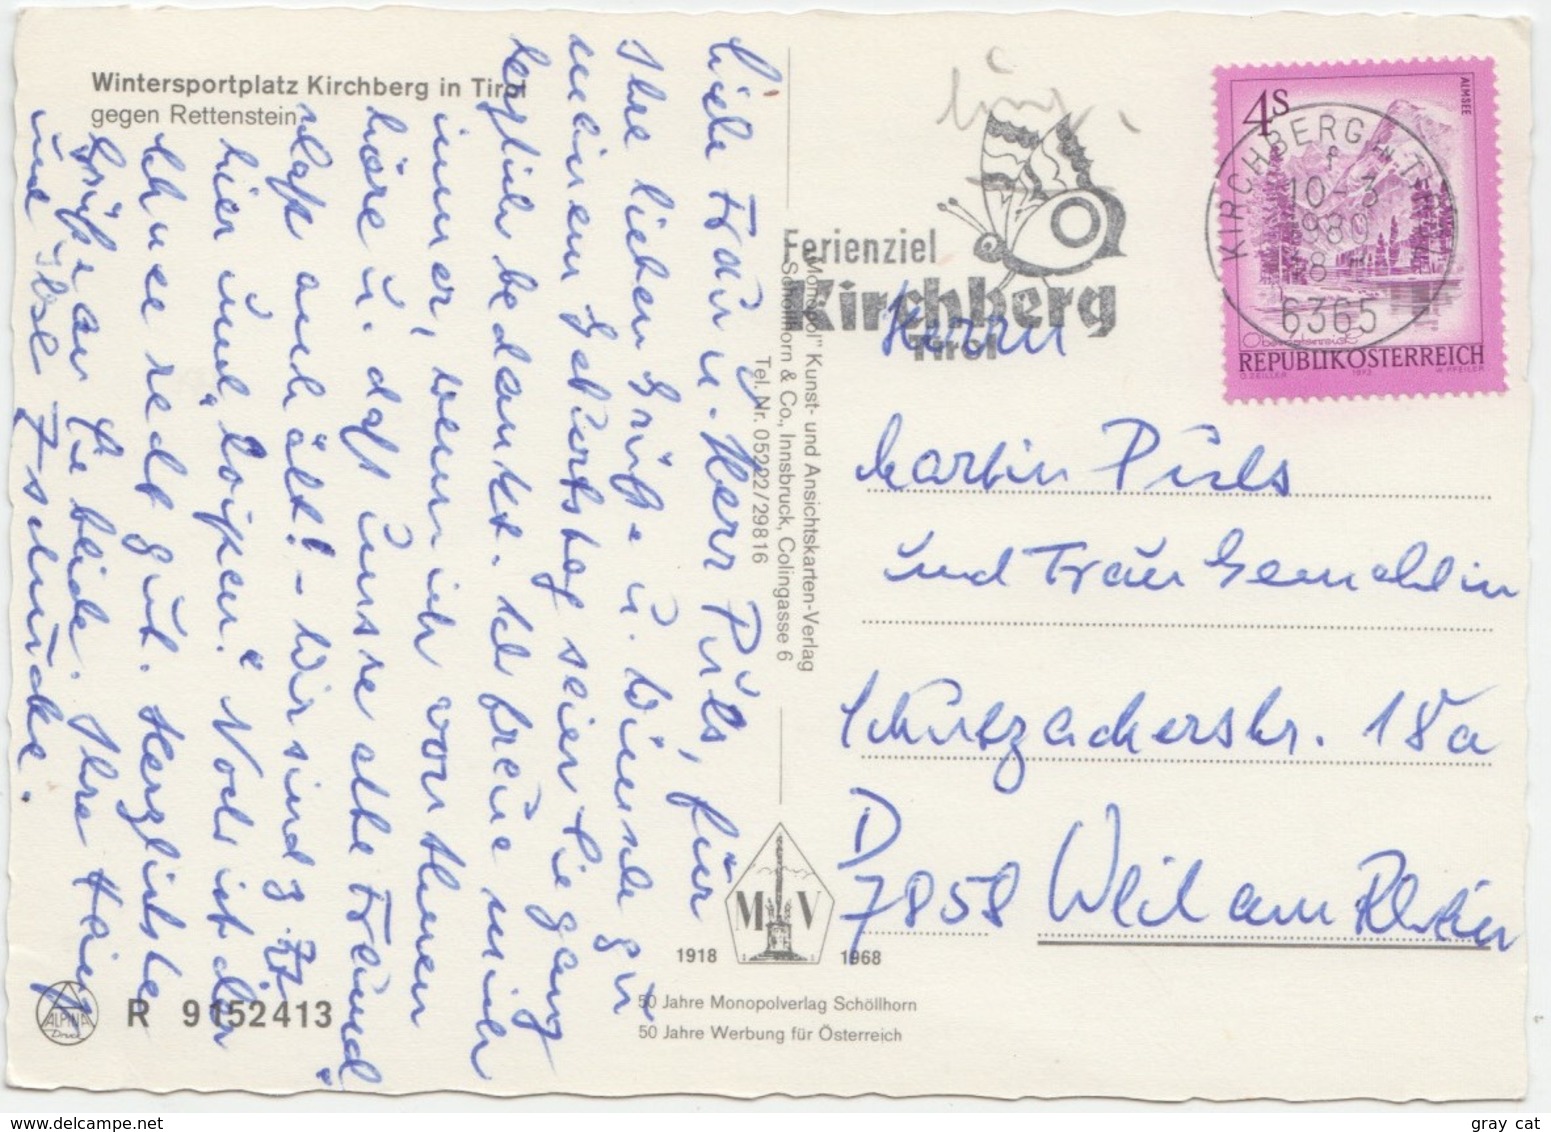 Wintersportplatz Kirchberg in Tirol
gegen Rettenstein
Liebe Frau u. Herr Puls, für
Ihre lieben Grüße u. Wünsche zu
meinem Geburtstag seien Sie ganz
herzlich bedankt. Ich freue mich
immer, wenn ich von Ihnen
höre u. daß unsere alte Freund-
schaft anhält! - Wir sind z. Zt.
hier zum "Loipen". Noch ist der
Schnee recht gut. Herzlichste
Grüße an Sie beide. Ihre Heinz
und Ilse
"Monopol" Kunst- und Ansichtskarten-Verlag
Schöllhorn & Co., Innsbruck, Colingasse 6
Tel. Nr. 05222/29816
Ferienziel
Kirchberg
Tirol
4S
ALMSEE
KIRCHBERG IN TIROL
f
10-3
1980
6365
Oberösterreich
REPUBLIK ÖSTERREICH
O. ZEILLER 1973 W. PFEILER
Herrn
Martin Puls
und Frau Gemahlin
Schützackerstr. 18a
D
7858 Weil am Rhein
M V
1918 1968
50 Jahre Monopolverlag Schöllhorn
50 Jahre Werbung für Österreich
ALPINA
Druck
R 9152413
www.delcampe.net
gray cat